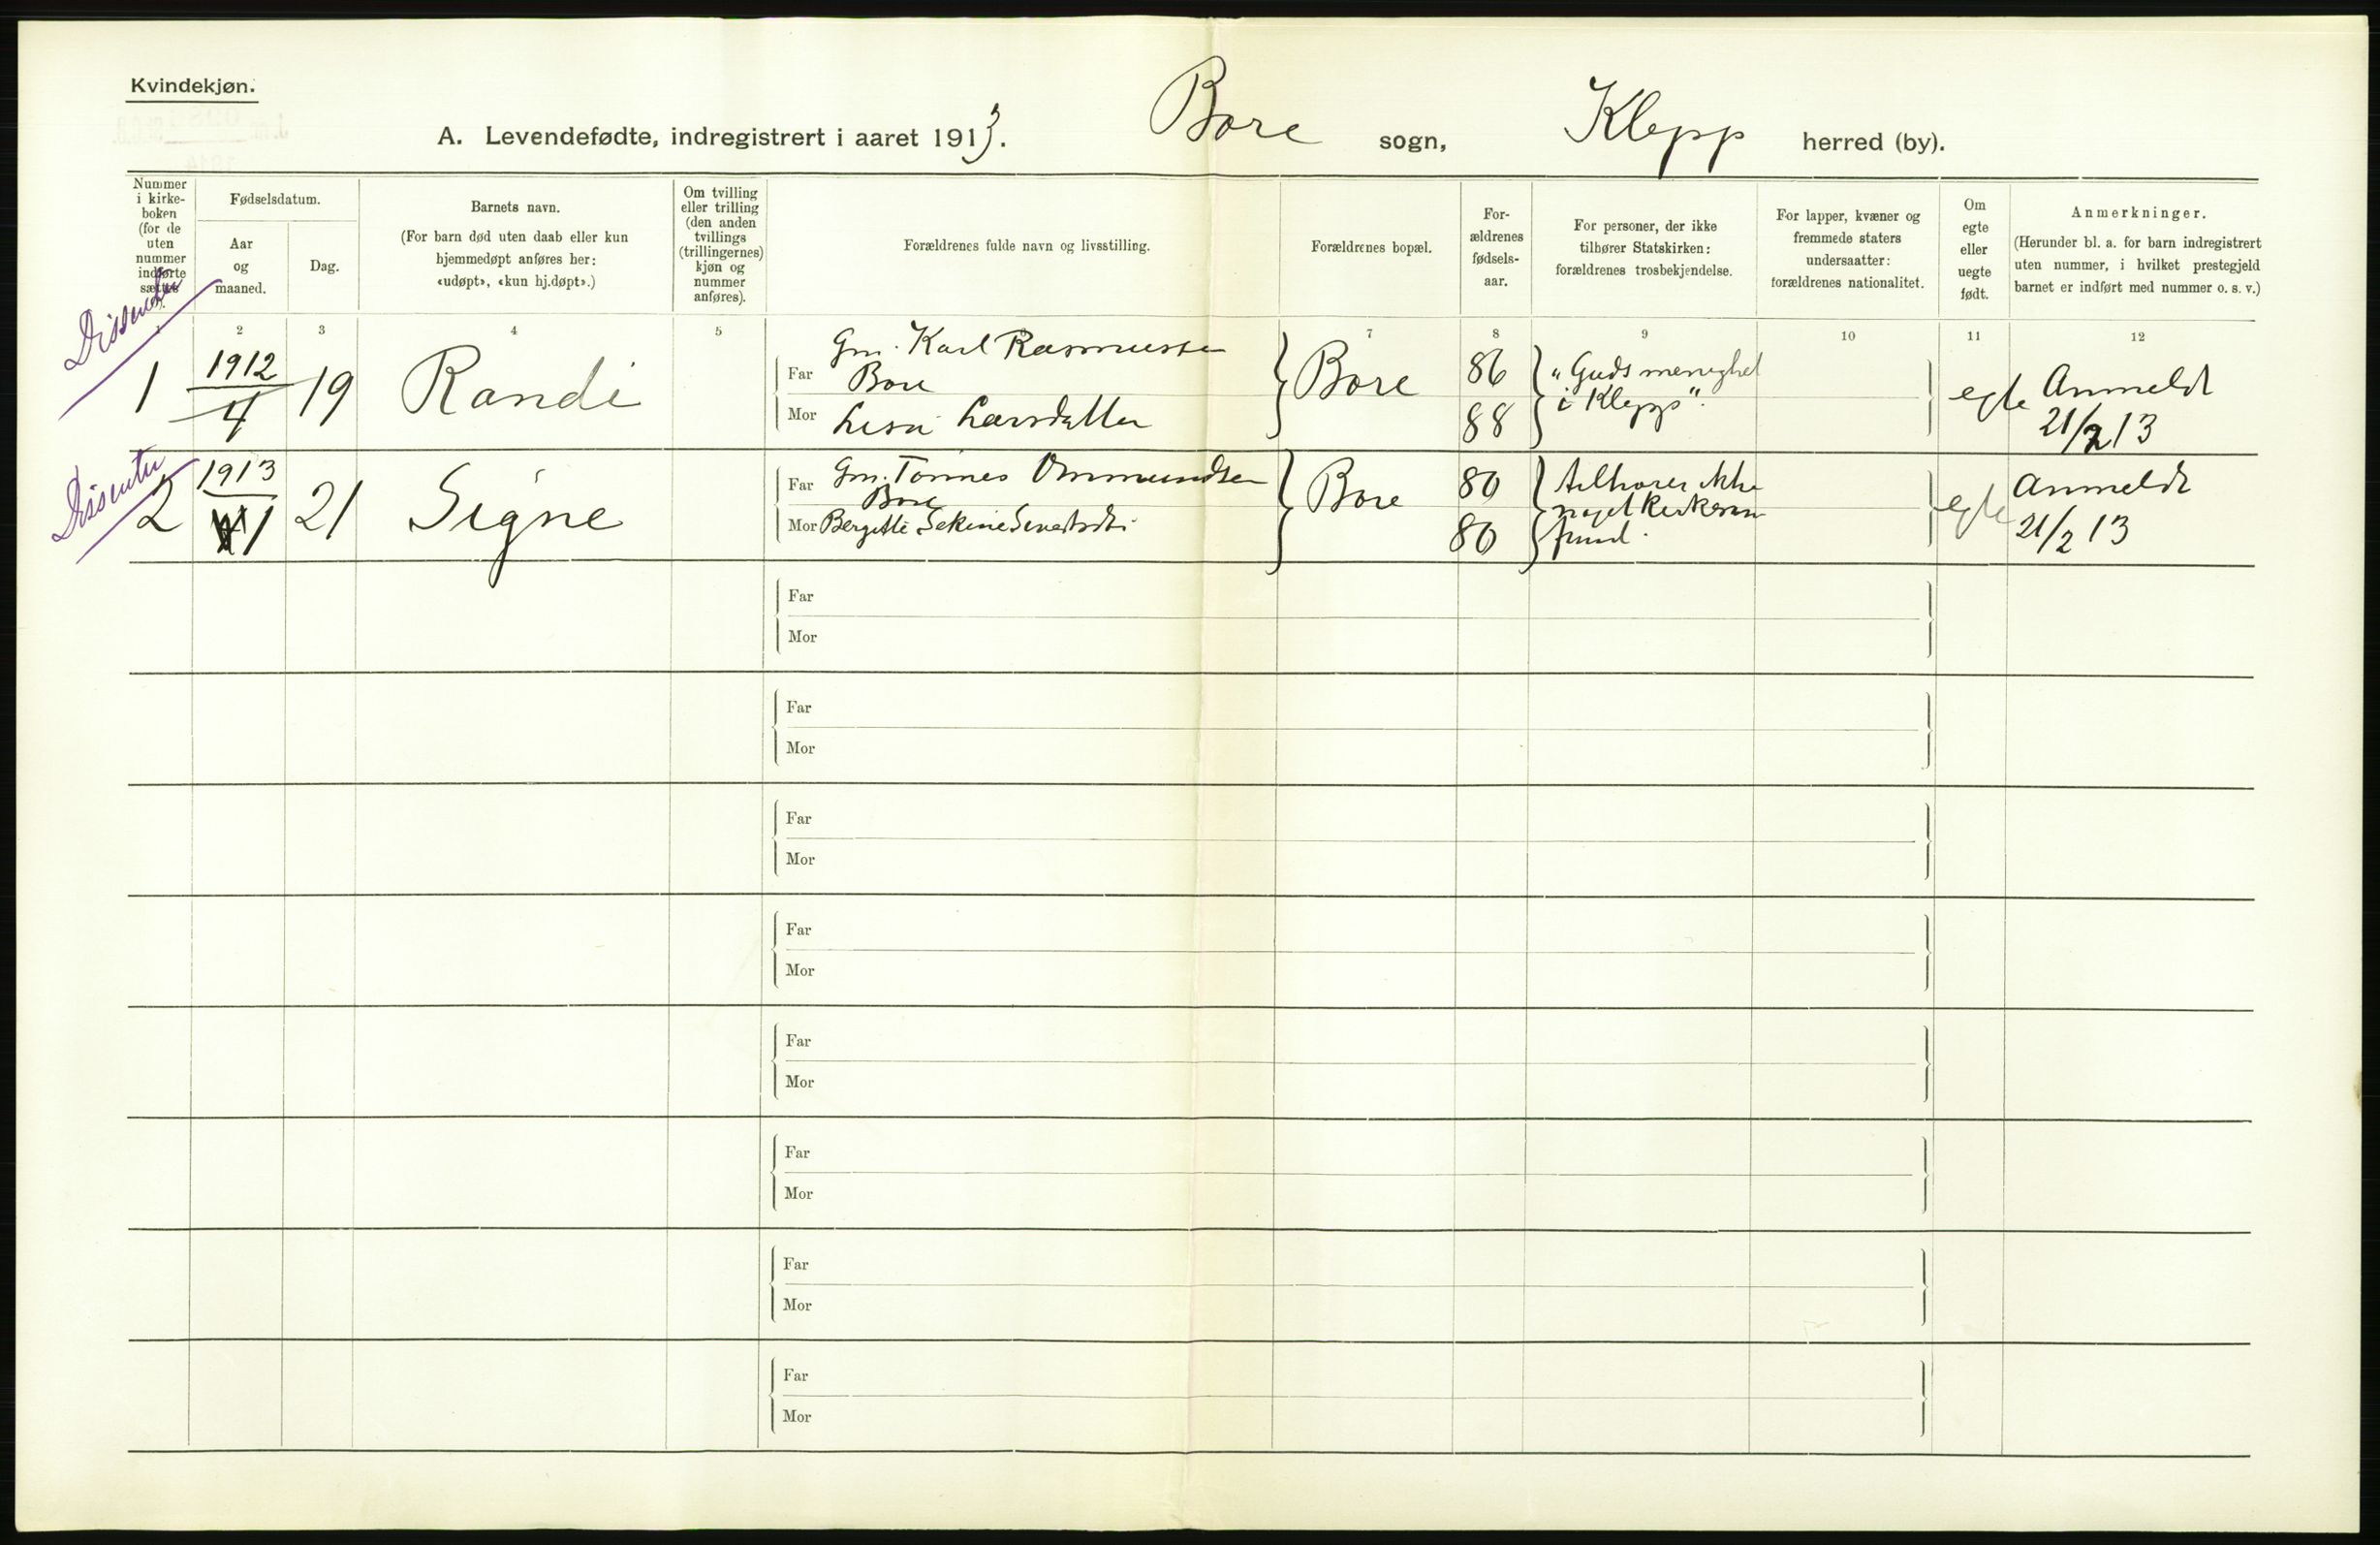 Kvindekjøn.
A. Levendefødte, indregistrert i aaret 1913. Bore sogn, Klepp herred (by).
Nummer
i kirke-
boken
(for de
uten
nummer
indførte
sættes
Fødselsdatum.
Aar
og
maaned.
Dag.
Barnets navn.
(For barn død uten daab eller kun
hjemmedøpt anføres her:
«udøpt», «kun hj.døpt».)
Om tvilling
eller trilling
(den anden
tvillings
(trillingernes)
kjøn og
nummer
anføres).
Forældrenes fulde navn og livsstilling.
Forældrenes bopæl.
For-
ældrenes
fødsels-
aar.
For personer, der ikke
tilhører Statskirken:
forældrenes trosbekjendelse.
For lapper, kvæner og
fremmede staters
undersaatter:
forældrenes nationalitet.
Om
egte
eller
uegte
født.
Anmerkninger.
(Herunder bl. a. for barn indregistrert
uten nummer, i hvilket prestegjeld
barnet er indført med nummer o. s. v.)
2 3 4 5 7 8 9 10 11 12
Dissenter
1
1912
4
19
Randi
Far Gm. Karl Rasmussen
Bore
Mor Lisa Larsdatter
Bore
86
88
"Guds menighet
i Klepp".
egte
Anmeldt
21/2 13
Dissenter
2
1913
1
21
Signe
Far Gm. Tønnes Ommundsen
Bore
Mor Bergitte Sekine
Bore
80
80
Tilhører ikke
noget kirkesam
fund.
egte
Anmeldt
21/2 13
Far
Mor
Far
Mor
Far
Mor
Far
Mor
Far
Mor
Far
Mor
Far
Mor
Far
Mor